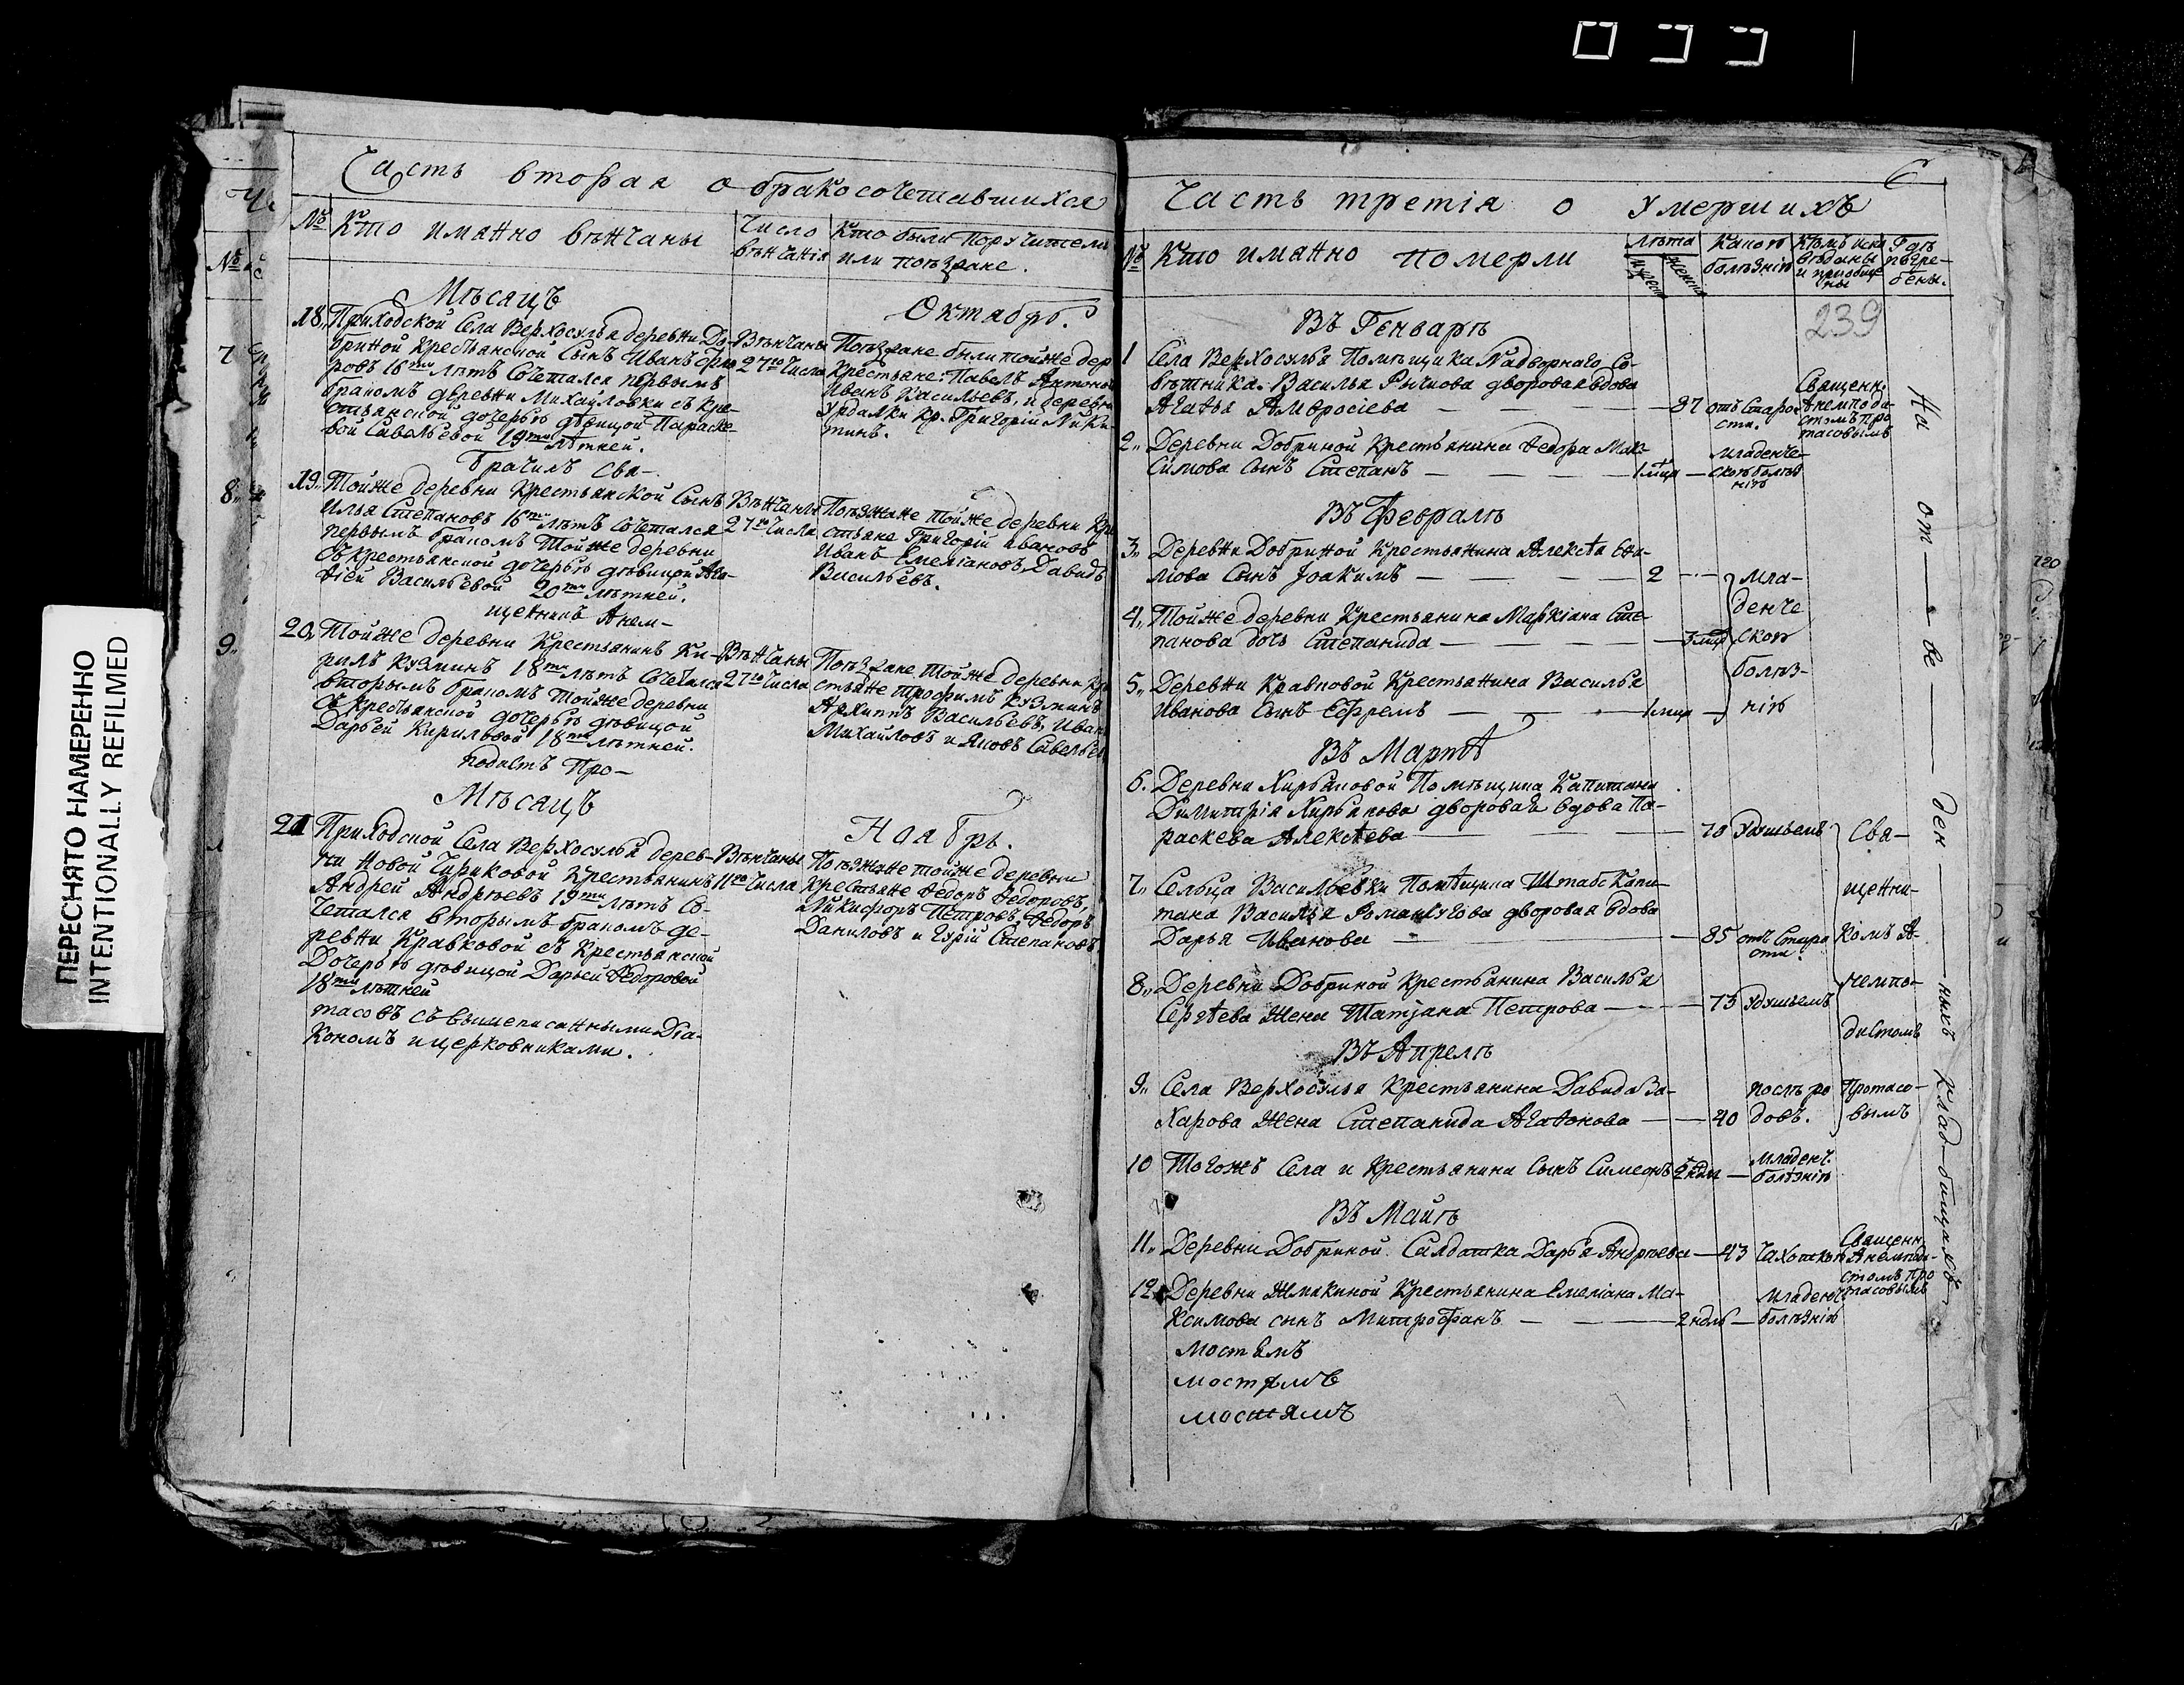 ПЕРЕСНЯТО НАМЕРЕННО
INTENTIONALLY REFILMED
Часть вторая о бракосочетавшихся
№ Кто имянно вѣнчаны
Число вѣнчанія
Кто были Поручители или поѣзжане.
Мѣсяцъ Октябрь.
18. Приходской Села Верхосулья деревни До-
бриной Крестьянской Сынъ Иванъ
ровъ 16ти лѣтъ Сочетался первымъ
бракомъ деревни Михайловки съ Кре-
стьянской дочерью дѣвицой Параске-
вой Савельевой 19ти лѣтней.
Вѣнчаны
27го Числа
Поѣзжане были тойже дер
Крестьяне: Павелъ Антоно
Иванъ Васильевъ, и деревн
Урдалки кр. Григорій Ники-
тинъ.
Брачилъ Свя-
19. Тойже деревни Крестьянской Сынъ
Илья Степановъ 16ти лѣтъ Сочетался
первымъ бракомъ Тойже деревни
Съ Крестьянской дочерью дѣвицой Ага-
ѳіей Васильевой 20ти лѣтней.
Вѣнчаны
27го Числа
Поѣзжане Тойже деревни Кре
стьяне Григорій Ивановъ
Иванъ Емеліановъ, Давидъ
Васильевъ.
щенникъ Анем-
20. Тойже деревни Крестьянинъ Ки-
рилъ Кузминъ 18ти лѣтъ Сочетался
вторымъ бракомъ Тойже деревни
Съ Крестьянской дочерью дѣвицой
Дарьей Кириловой 18ти лѣтней.
Вѣнчаны
27го Числа
Поѣзжане Тойже деревни Кр
стьяне Трофимъ Кузминъ
Архиппъ Васильевъ, Иван
Михайловъ и Яковъ Савельев
подистъ Про-
Мѣсяцъ Ноябрь.
21 Приходской Села Верхосулья дерев-
ни Новой Чириковой Крестьянинъ
Андрей Андрѣевъ 19ти лѣтъ Со-
четался вторымъ бракомъ де-
ревни Кравковой съ Крестьянской
Дочерью дѣвицой Дарьей Ѳедоровой
18ти лѣтней
Вѣнчаны
11го Числа
Поѣзжане тойже деревни
Крестьяне Ѳедоръ Ѳедоровъ,
Никифоръ Петровъ, Ѳедоръ
Даниловъ и Гурій Степановъ
тасовъ съ вышеписанными Діа-
Кономъ и церковниками.
6
Часть третія о Умершихъ
№ Кто имянно померли
Лѣта
мужеск
женска
Какою болѣзнію
Кѣмъ испо вѣданы и приобще ны
Гдѣ погре- бены.
239
Въ Генварѣ
1 Села Верхосулья Помѣщика Надворнаго Со-
вѣтника Василья Рычкова дворовая вдова
Агаѳья Амвросіева — 87 отъ Старо- сти.
Священн. Анемподи- стомъ Про тасовымъ
2. Деревни Добриной Крестьянина Ѳедора Мак-
симова Сынъ Степанъ — 1 мца — младенче- скою болѣз ніею
Въ Февралѣ
3. Деревни Добриной Крестьянина Алексѣя
Сынъ Іоакимъ — 2 —
4. Тойже деревни Крестьянина Маркіана Сте-
панова дочь Степанида — 3 мца
5. Деревни Кравковой Крестьянина Василья
Иванова Сынъ Ефремъ — 1 мца —
мла-
денче
скою
болѣз-
нію
Въ Мартѣ
6. Деревни Помѣщика Капитана
Димитрія дворовая вдова Па-
раскева Алексѣева — 70 Удушьемъ
7. Сельца Васильевки Помѣщика Штабс Капи-
тана Василья дворовая вдова
Дарья Иванова — 85 отъ Старо сти.
8. Деревни Добриной Крестьянина Василья
Сергѣева жена Татіана Петрова — 75 Удушьемъ
Въ Апрелѣ
9. Села Верхосулья Крестьянина Давида За-
харова жена Степанида Агаѳонова — 40 послѣ ро довъ.
Свя-
щенни-
комъ А-
немпо-
дистомъ
Протасо-
вымъ
10 Тогожъ Села и Крестьянина Сынъ Симеонъ 2 нѣдл — Младенч. болѣзнію
Въ Маиѣ
11. Деревни Добриной Салдатка Дарья Андрѣева — 43 Чахоткою
Священн. Анемподи- стомъ Про тасовымъ
12. Деревни Жмакиной Крестьянина Емеліана Ма-
ксимова сынъ Митрофанъ — 2 ндль — младенч. болѣзнію
мостемъ
мостямъ
мостямъ
На от — ве — ден — ныхъ клад-бищахъ